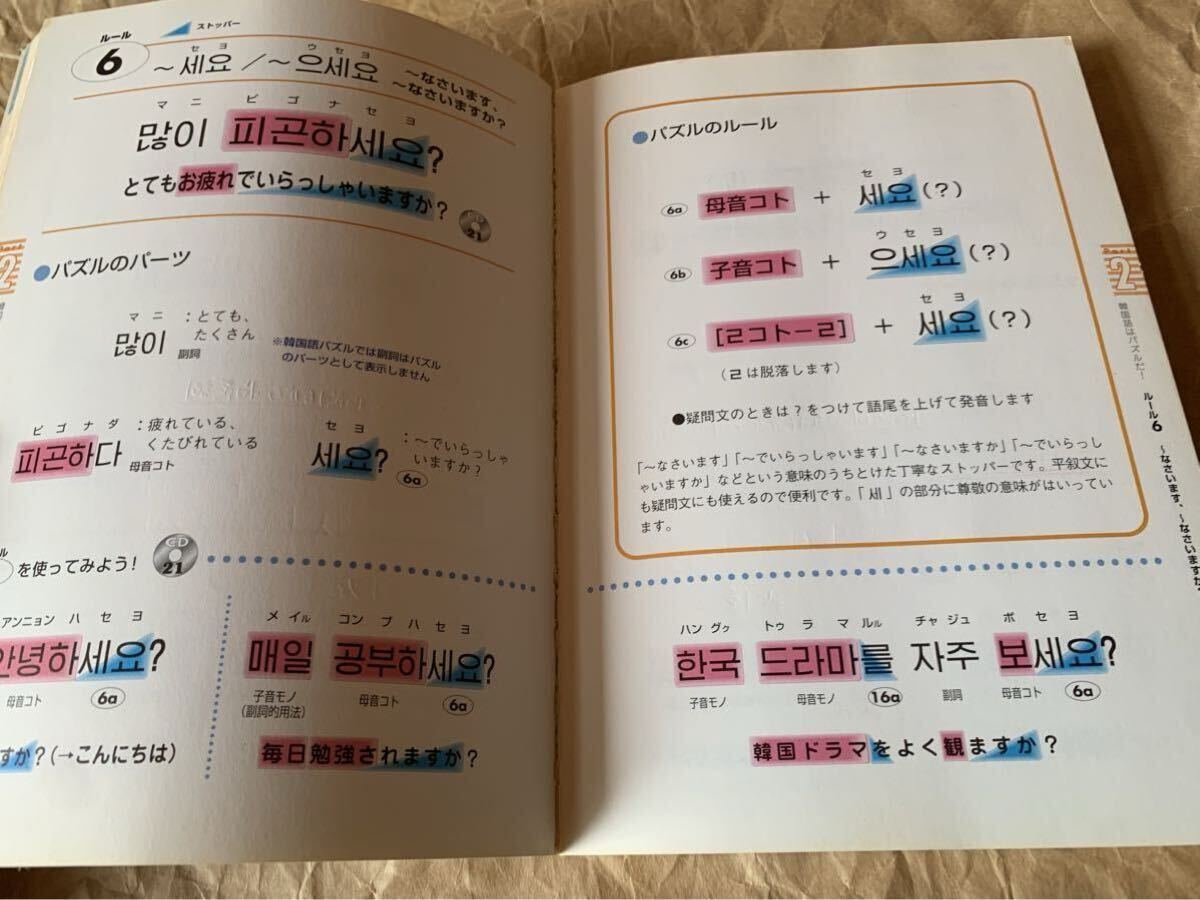 ルール
ストッパー
6
セ ヨ
ウ セ ヨ
～세요 /～으세요
～なさいます、
～なさいますか?
マ ニ ピ ゴ ナ セ ヨ
많이 피곤하세요?
とてもお疲れでいらっしゃいますか?
CD
21
●パズルのパーツ
マ ニ
많이
：とても、
たくさん
副詞
※韓国語パズルでは副詞はパズル
のパーツとして表示しません
ピ ゴ ナ ダ
피곤하다
：疲れている、
くたびれている
母音コト
セ ヨ
세요?
：～でいらっしゃ
いますか?
6a
ル
を使ってみよう!
CD
21
アンニョン ハ セ ヨ
안녕하세요?
母音コト
6a
すか?(→こんにちは)
メ イル コン ブ ハ セ ヨ
매일 공부하세요?
子音モノ
(副詞的用法)
母音コト
6a
毎日勉強されますか?
●パズルのルール
セ ヨ
6a 母音コト + 세요(?)
ウ セ ヨ
6b 子音コト + 으세요(?)
セ ヨ
6c [ㄹコトーㄹ] + 세요(?)
(ㄹは脱落します)
●疑問文のときは?をつけて語尾を上げて発音します
「～なさいます」「～でいらっしゃいます」「～なさいますか」「～でいらっし
ゃいますか」などという意味のうちとけた丁寧なストッパーです。平叙文に
も疑問文にも使えるので便利です。「세」の部分に尊敬の意味がはいってい
ます。
ハン グク トゥ ラ マ ルル チャ ジュ ボ セ ヨ
한국 드라마를 자주 보세요?
子音モノ 母音モノ 16a 副詞 母音コト 6a
韓国ドラマをよく観ますか?
Part
2
韓国語はパズルだ!
ルール6
～なさいます、～なさいますか
2